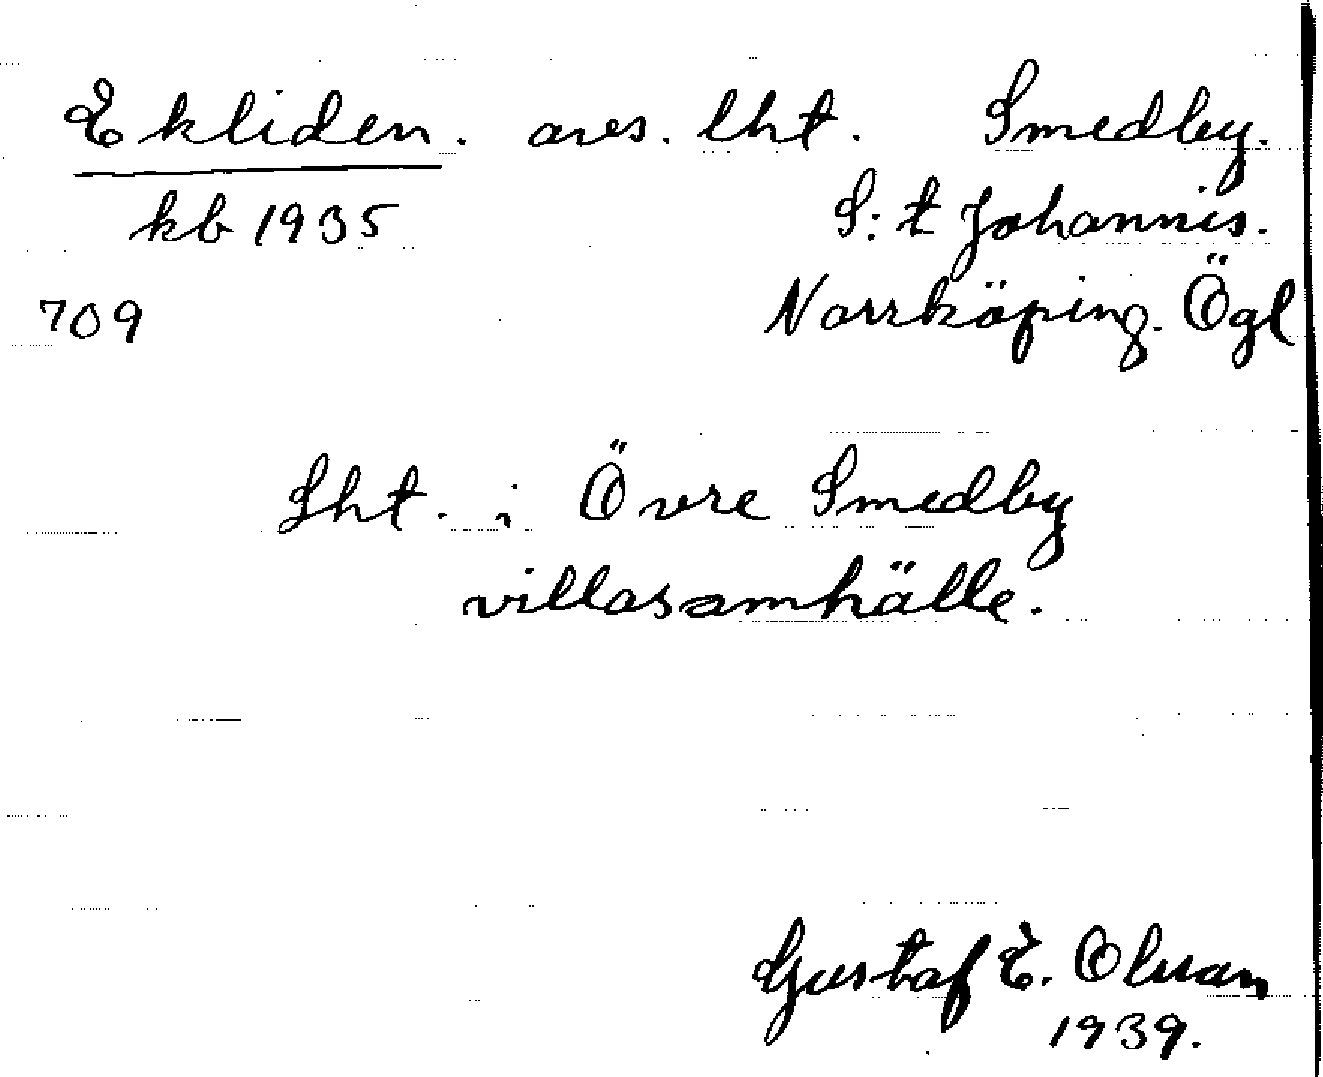 Ekliden. avs. lht. Smedby.
kb 1935 S:t Johannis.
709 Norrköping. Ögl
Lht. i Övre Smedby
villasamhälle.
Gustaf E. Olsson
1939.